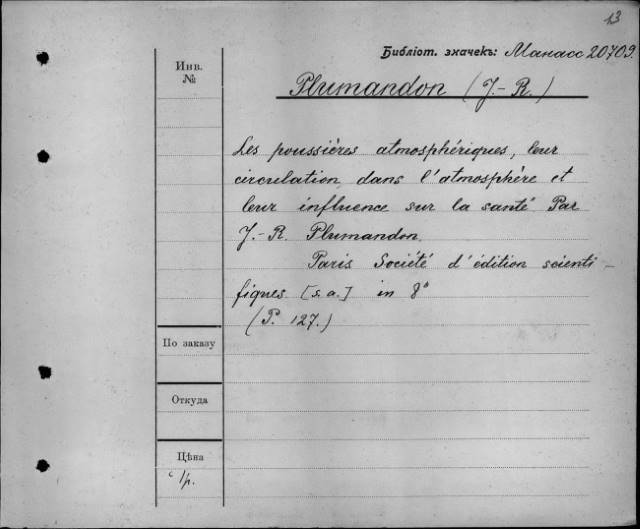 13
Библіот. значекъ: Манасс 20709.
Инв.
№
Plumandon (J.-R.)
Les poussières atmosphériques, leur
circulation dans l'atmosphère et
leur influence sur la santé Par
J.-R. Plumandon.
Paris Société d'édition scienti-
fiques [s. a.] in 8°
(P. 127.)
По заказу
Откуда
Цѣна
1р.